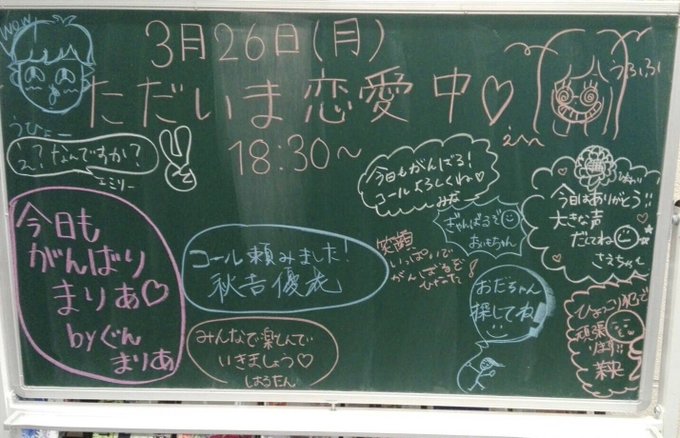 wow!
3月26日(月)
ただいま恋愛中♡
18:30〜
うひょー
うふふ
え?なんですか?
エミリー
今日もがんばる!
コールよろしくね♡
みな
今日はありがとう!!
大きな声
だしてね
さえちゃん
がんばるぞ
おもちゃん
今日も
がんばり
まりあ♡
byぐん
まりあ
コール頼みました!
秋吉優花
笑顔
いっぱいで
がんばるぞ
おだちゃん
探してね
みんなで楽しんで
いきましょう♡
しおうたん
ひょっこりはんで
頑張
ります!!